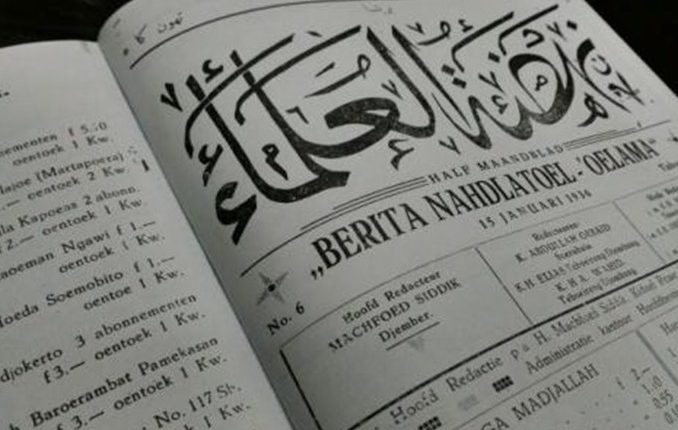 ementen f 5.
oentoek 1 Kw.
lajoe (Martapoera)
.— oentoek 2 Kw.
la Kapoeas 2 abonn.
f 2.— oentoek 1 Kw.
aoeman Ngawi f 1.—
oentoek 1 Kw.
Moeda Soemobito f 1.—
oentoe 1 Kw.
djokerto 3 abonnementen
f 3.— oentoek 1 Kw.
h Baroerambat Pamekasan
f 3.— oentoek 1 Kw.
No. 117 Sb.
oentoek 1 Kw.
نهضة العلماء
HALF MAANDBLAD
„BERITA NAHDLATOEL-'OELAMA"
15 JANUARI 1936
No. 6
Hoofd Redacteur
MACHFOED SIDDIK
Djember.
Redacteuren:
K. ABDULLAH OEBAID
Soerabaia
K.H. ELIAS Teboeireng Djombang
K. H. A. WAHID
Teboeireng Djombang
Hoofd Redactie p/a H. Machfoed Siddik
Administratie kantoor Hoofdbestuur
GA MADJALLAH
f 2.—